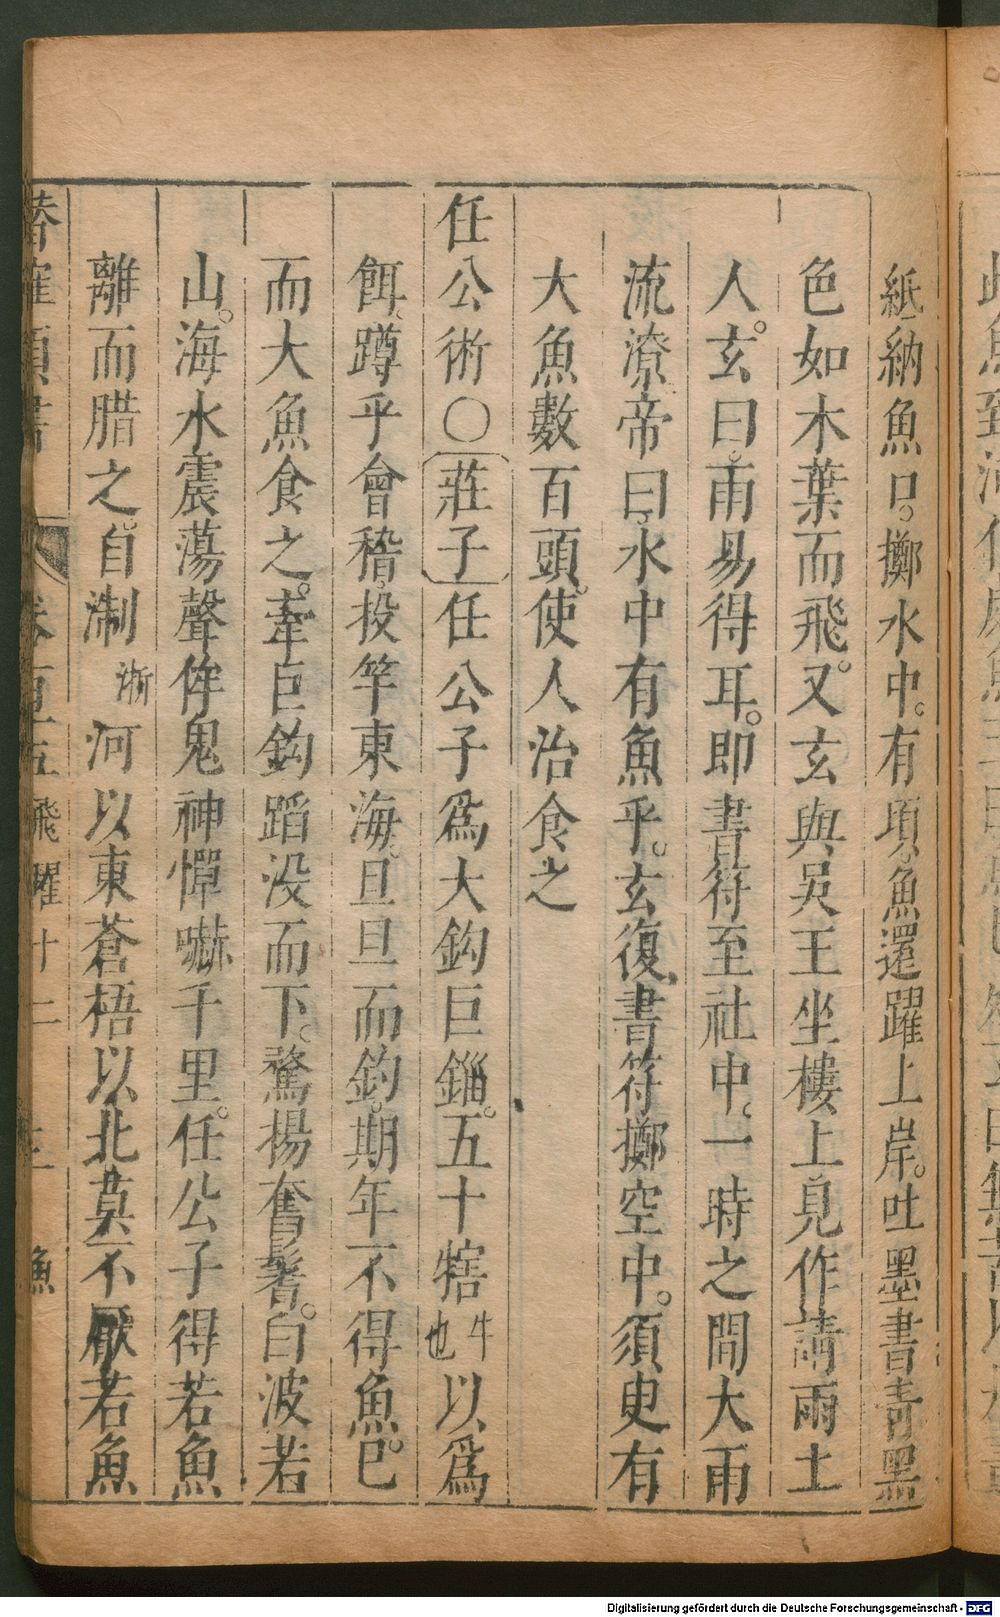 紙納魚口。擲水中。有頃。魚還躍上岸。吐墨書青黑
色如木葉而飛。又玄與吳王坐樓上。見作請雨土
人。玄曰。雨易得耳。即書符至社中。一時之間大雨
流潦。帝曰。水中有魚乎。玄復書符擲空中。須臾有
大魚數百頭。使人治食之
任公術〇莊子任公子爲大鈎巨錙。五十犗牛也以爲
餌。蹲乎會稽。投竿東海。旦旦而釣。期年不得魚。已
而大魚食之。牽巨鈎䧟没而下。騖揚奮鬐。白波若
山。海水震蕩聲侔鬼神。憚嚇千里。任公子得若魚
離而腊之。自淛浙河以東蒼梧以北莫不厭若魚
卷百五飛躍十二 魚
Digitalisierung gefördert durch die Deutsche Forschungsgemeinschaft - DFG